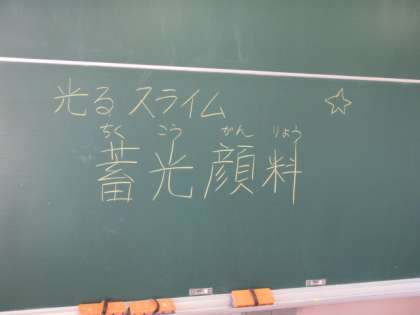 光るスライム ☆
ちく こう がん りょう
蓄光顔料